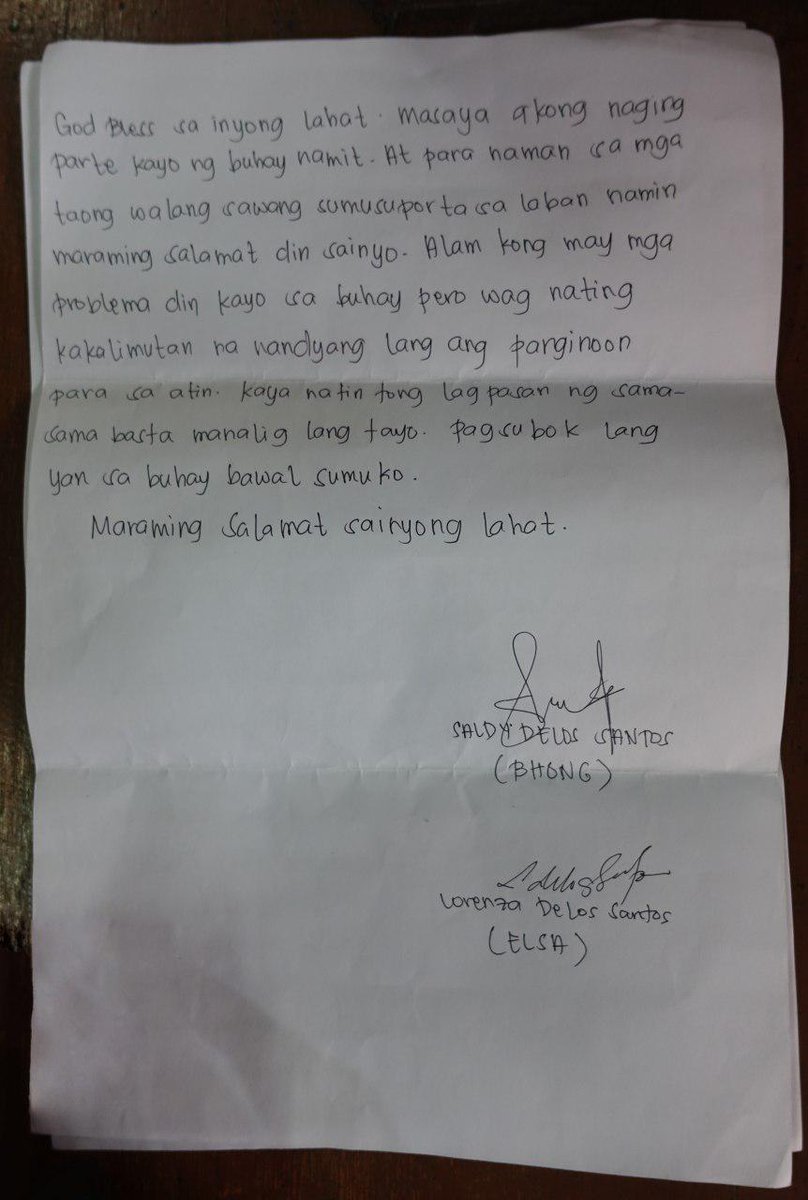 God Bless sa inyong lahat. masaya akong naging
parte kayo ng buhay namit. At para naman sa mga
taong walang sawang sumusuporta sa laban namin
maraming salamat din sainyo. Alam kong may mga
problema din kayo sa buhay pero wag nating
kakalimutan na nandyang lang ang parginoon
para sa atin. kaya natin tong lagpasan ng sama-
sama basta manalig lang tayo. Pagsubok lang
yan sa buhay bawal sumuko.
Maraming salamat sainyong lahat.
SALDY DELOS SANTOS
(BHONG)
Lorenza Delos Santos
(ELSA)